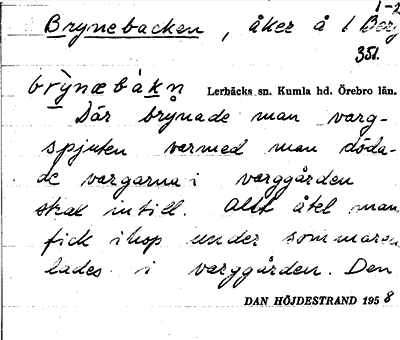 1-2
Brynebacken, åker å 1 Berg
351.
brỳnæbàkn̥ Lerbäcks sn. Kumla hd. Örebro län.
Där brynade man varg-
spjuten varmed man döda-
de vargarna i varggården
strax intill. Allt åtel man
fick ihop under sommaren
lades i varggården. Den
DAN HÖJDESTRAND 1958